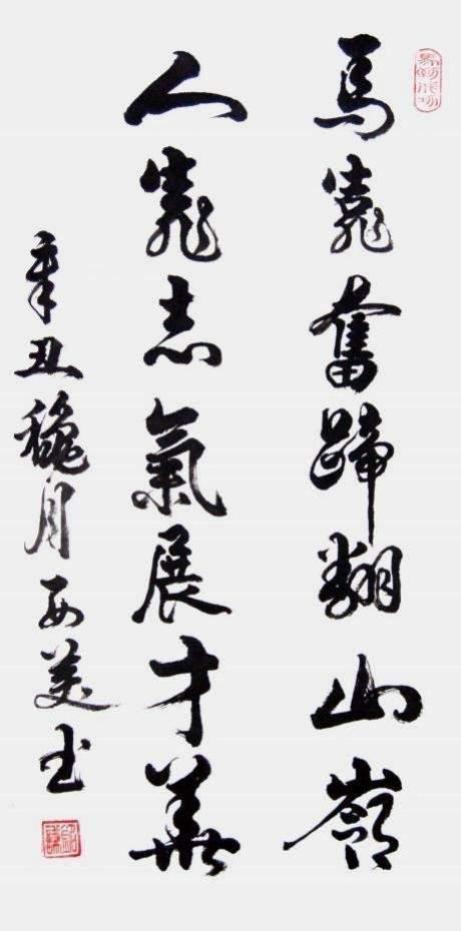 馬靠奮蹄翻山嶺
人靠志氣展才華
辛丑龝月美书